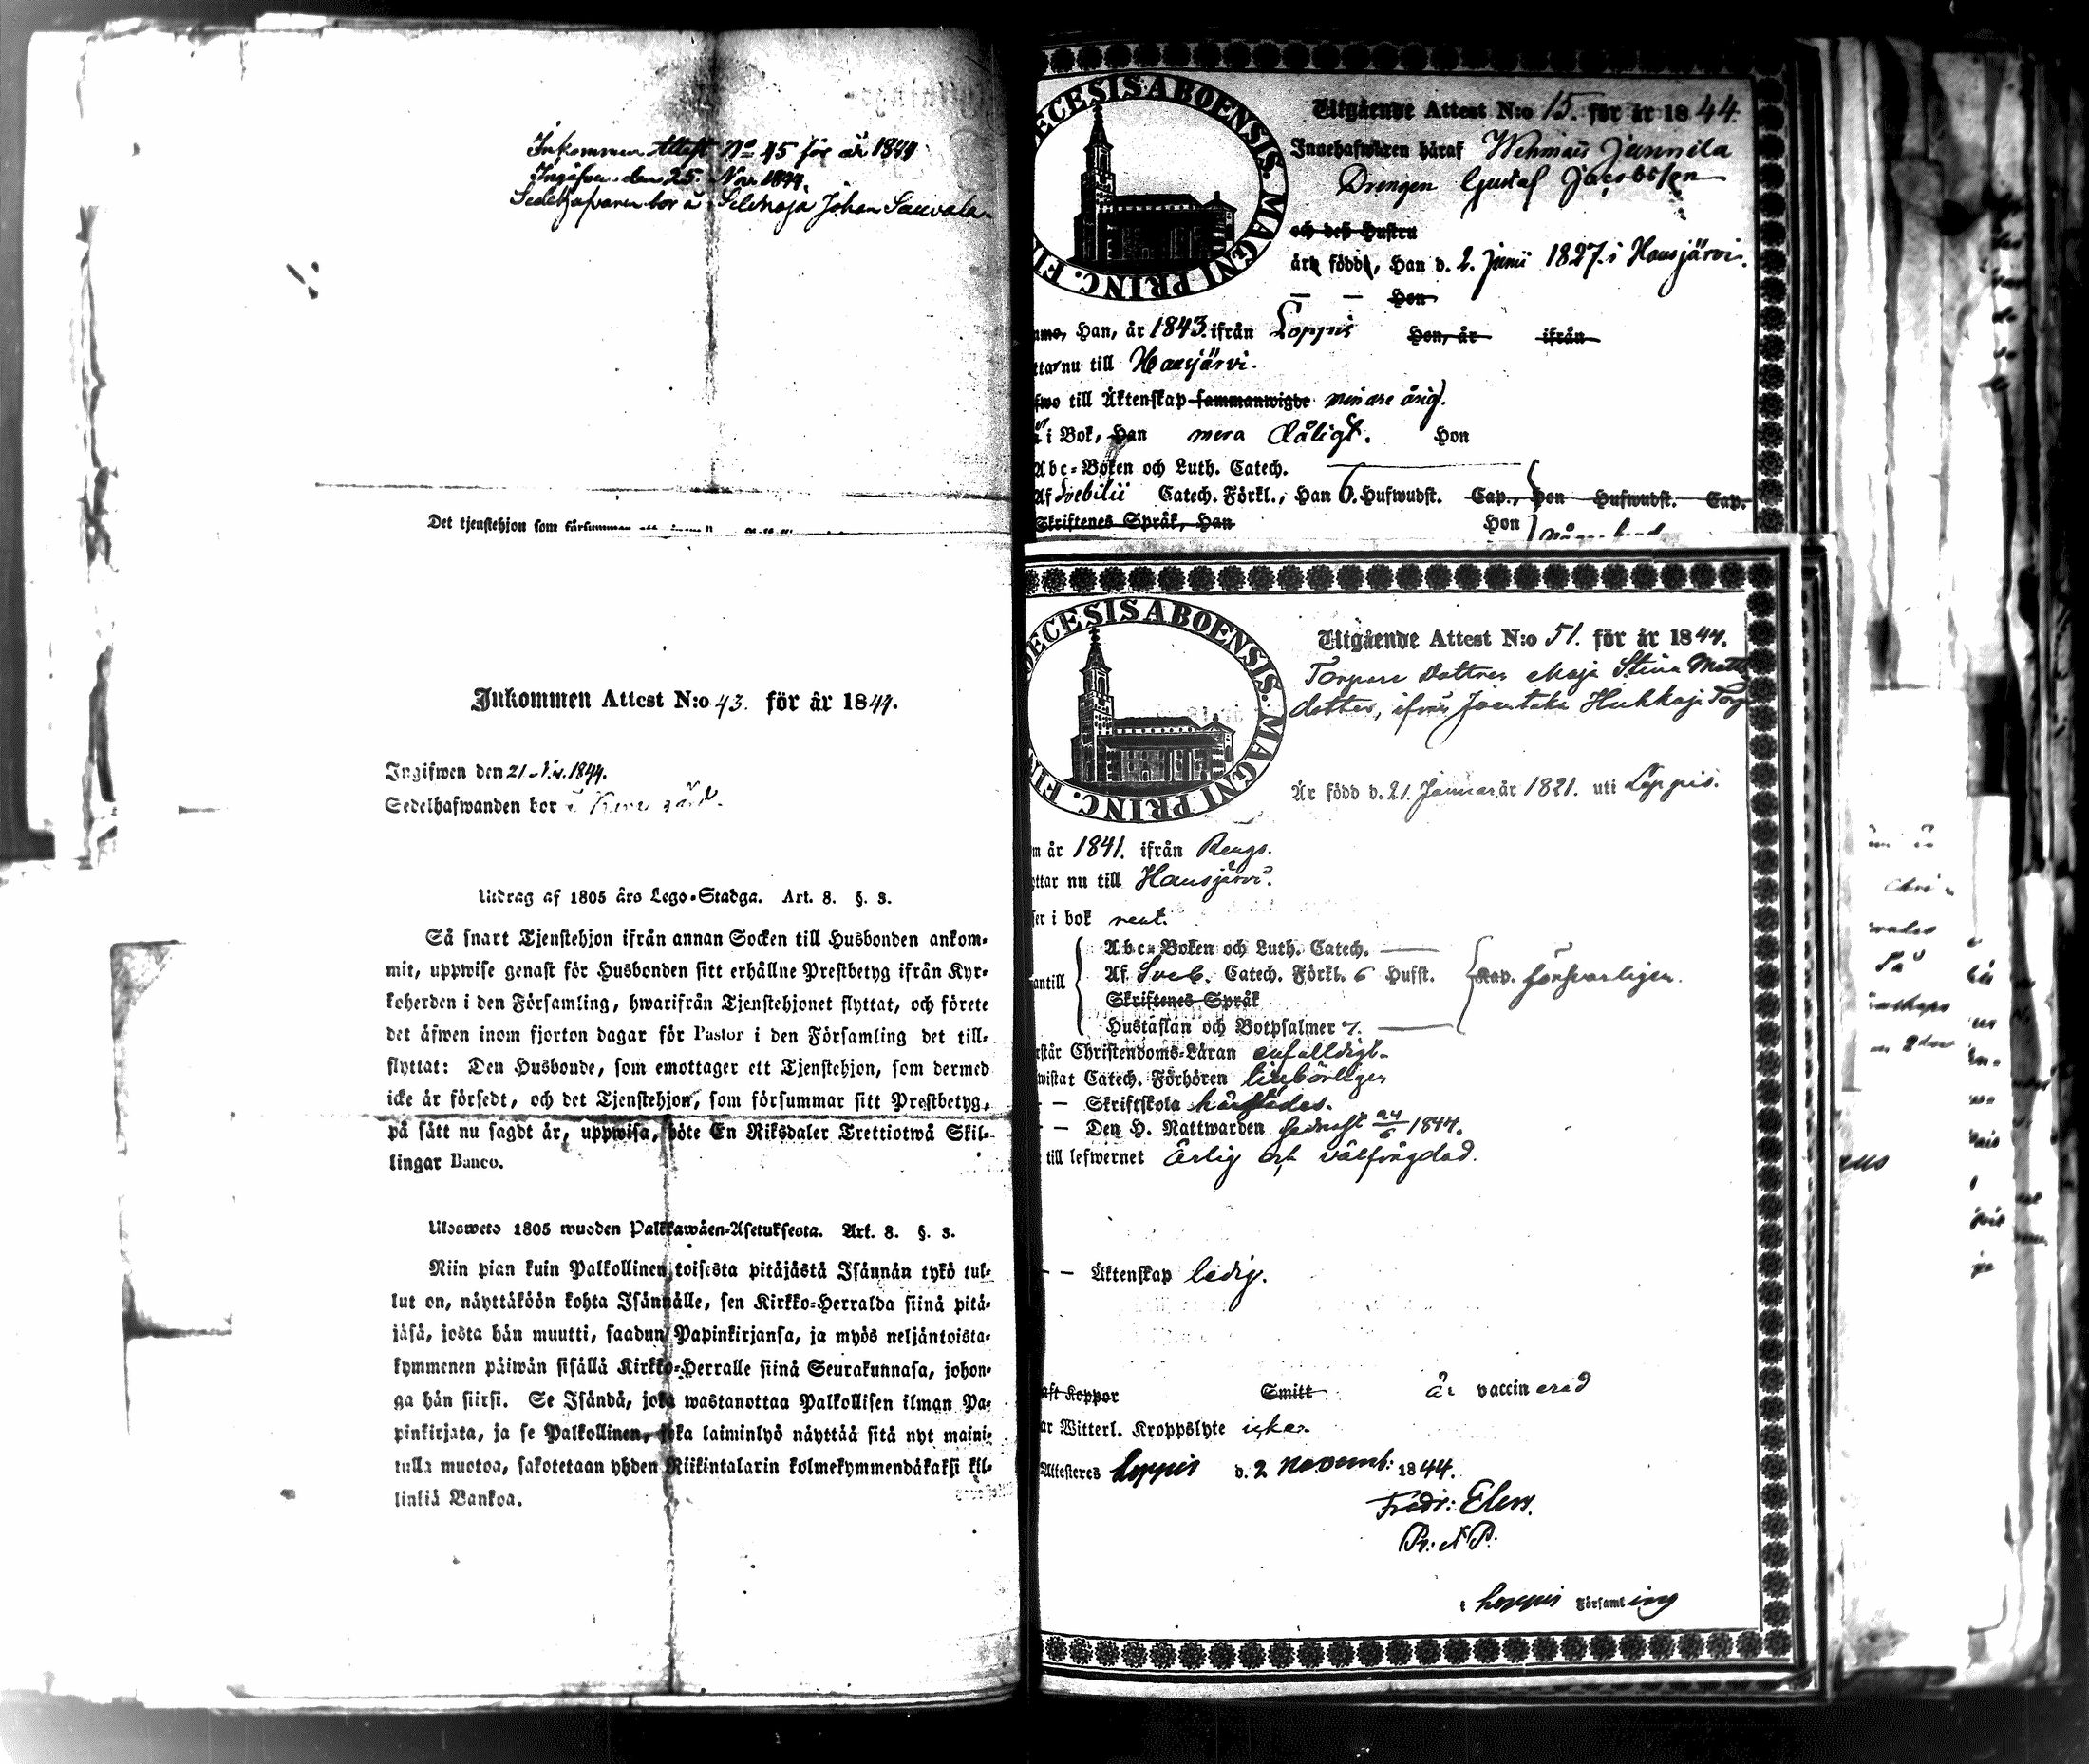 Inkommen Attest No 45 för år 1844
Ingifven den 25. Nov 1844.
Sedelhafvaren bor å Selänoja Johan Sauvala.
Det tjenstehjon som försummar
Inkommen Attest N:o 43. för år 1844.
Ingifwen den 21 Nov. 1844.
Sedelhafwanden bor
Utdrag af 1805 års Lego-Stadga. Art. 8. §. 3.
Så snart Tjenstehjon ifrån annan Socken till Husbonden ankom-
mit, uppwise genast för Husbonden sitt erhållne Prestbetyg ifrån Kyr-
koherden i den Församling, hwarifrån Tjenstehjonet flyttat, och förete
det äfwen inom fjorton dagar för Pastor i den Församling det till-
flyttat: Den Husbonde, som emottager ett Tjenstehjon, som dermed
icke är försedt, och det Tjenstehjon, som försummar sitt Prestbetyg,
på sätt nu sagdt är, uppwisa, böte En Riksdaler Trettiotwå Skil-
lingar Banco.
Ulosweto 1805 wuoden Palkkawäen-Asetuksesta. Art. 8. §. 3.
Niin pian kuin Palkollinen toisesta pitäjästä Isännän tykö tul-
lut on, näyttäköön kohta Isännälle, sen Kirkko-Herralda siinä pitä-
jäsä, josta hän muutti, saadun Papinkirjansa, ja myös neljäntoista-
kymmenen päiwän sisällä Kirkko-Herralle siinä Seurakunnasa, johon-
ga hän siirsi. Se Isändä, joka wastanottaa Palkollisen ilman Pa-
pinkirjata, ja se Palkollinen, joka laiminlyö näyttää sitä nyt maini-
tulla muotoa, sakotetaan yhden Riikintalarin kolmekymmendäkaksi kil-
linkiä Bankoa.
ECESIS ABOENSIS. MAGNI PRINC. FI
Utgående Attest N:o 15. för år 1844.
Innehafwaren häraf Wehmais Jannila
Drengen Gustaf Jacobsson
och deß Hustru
är född, Han d. 2. Junii 1827. i Hausjärvi.
— — Hon
Han, år 1843. ifrån Loppis Hon, år ifrån
nu till Hausjärvi.
till Äktenskap sammanwigde mindre årig.
i Bok, Han mera dåligt. Hon
Abc-Boken och Luth. Catech.
Af Svebilii Catech. Förkl., Han 6. Hufwudst. Cap., Hon Hufwudst. Cap.
Skriftenes Språk, Han Hon
DECESIS ABOENSIS. MAGNI PRINC. FI
Utgående Attest N:o 51. för år 1844.
Torpare dottren Maja Stina Matts
dotter, ifrån Joentaka Hukkaja Torp
Är född d. 21. Januari år 1821. uti Loppis.
år 1841. ifrån Rengo.
nu till Hausjärvi.
i bok rent.
Abc-Boken och Luth. Catech.
Af Sveb. Catech. Förkl. 6 Hufst. Kap. försvarligen.
Skriftenes Språk
Hustaflan och Botpsalmer 7.
Christendoms-Läran enfaldigt
Catech. Förhören tillbörligen
— Skriftskola härstädes.
— Den H. Nattwarden sednast 24/6 1844.
till lefwernet ärlig och välfrägdad.
— — Äktenskap ledig.
haft Koppor Smitt är vaccinerad
Witterl. Kroppslyte icke.
Attesteres Loppis d. 2 Novemb: 1844.
Fredr: Elers.
i Loppis Församling